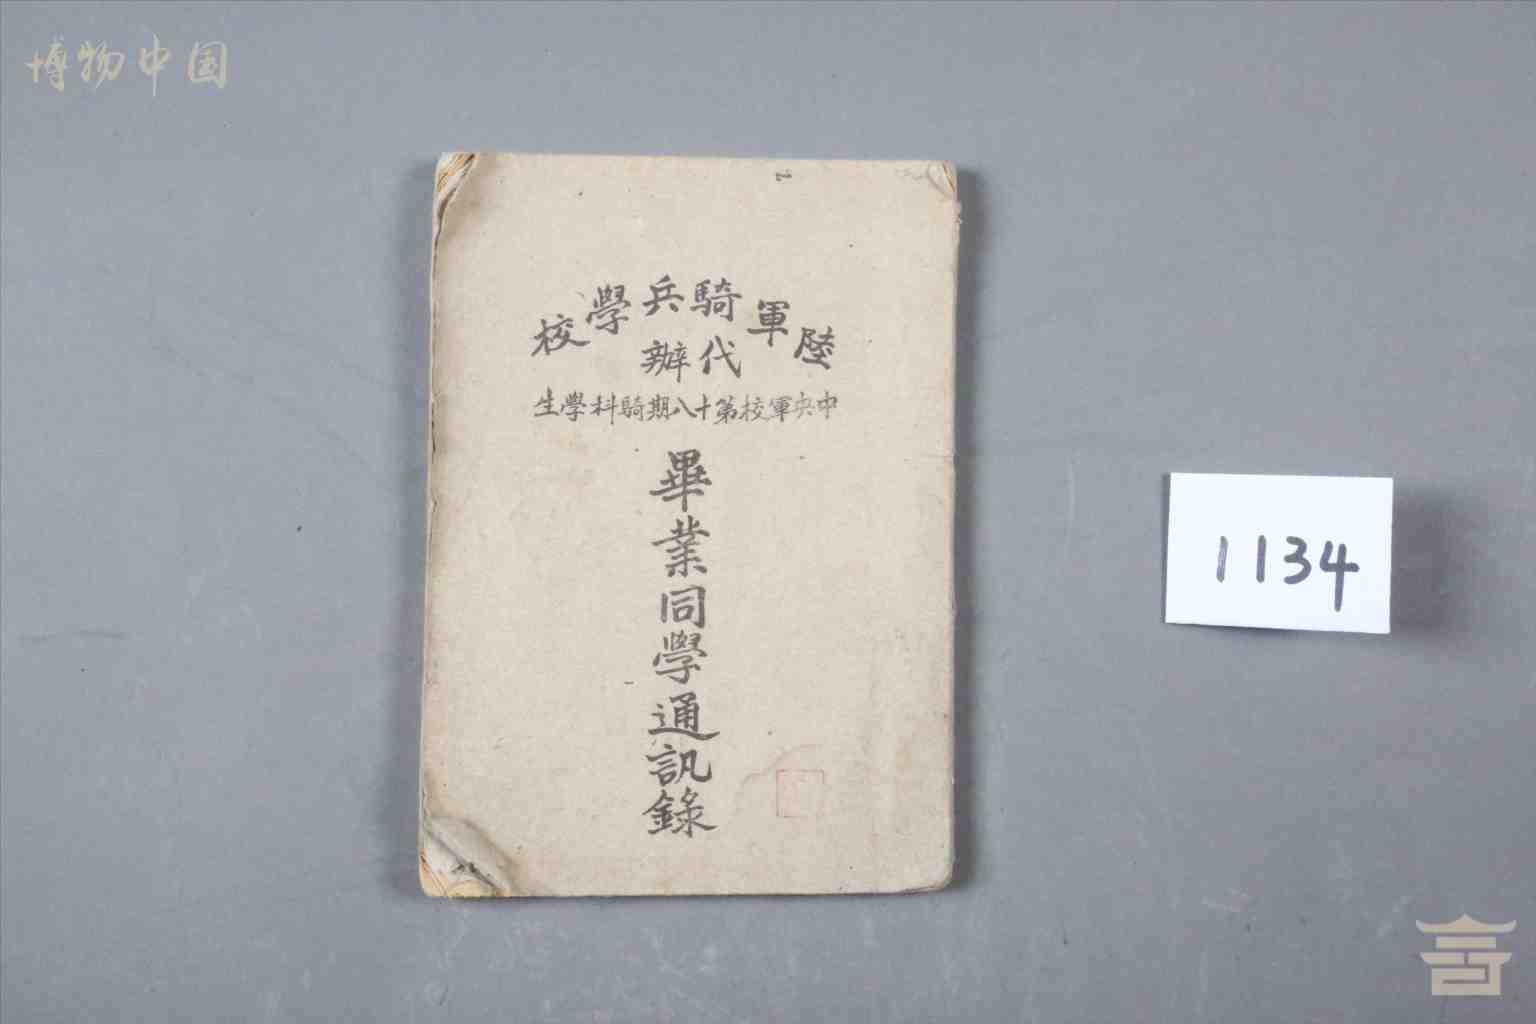 博物中国
陸軍騎兵學校
代辦
中央軍校第十八期騎科學生
畢業同學通訊錄
1134